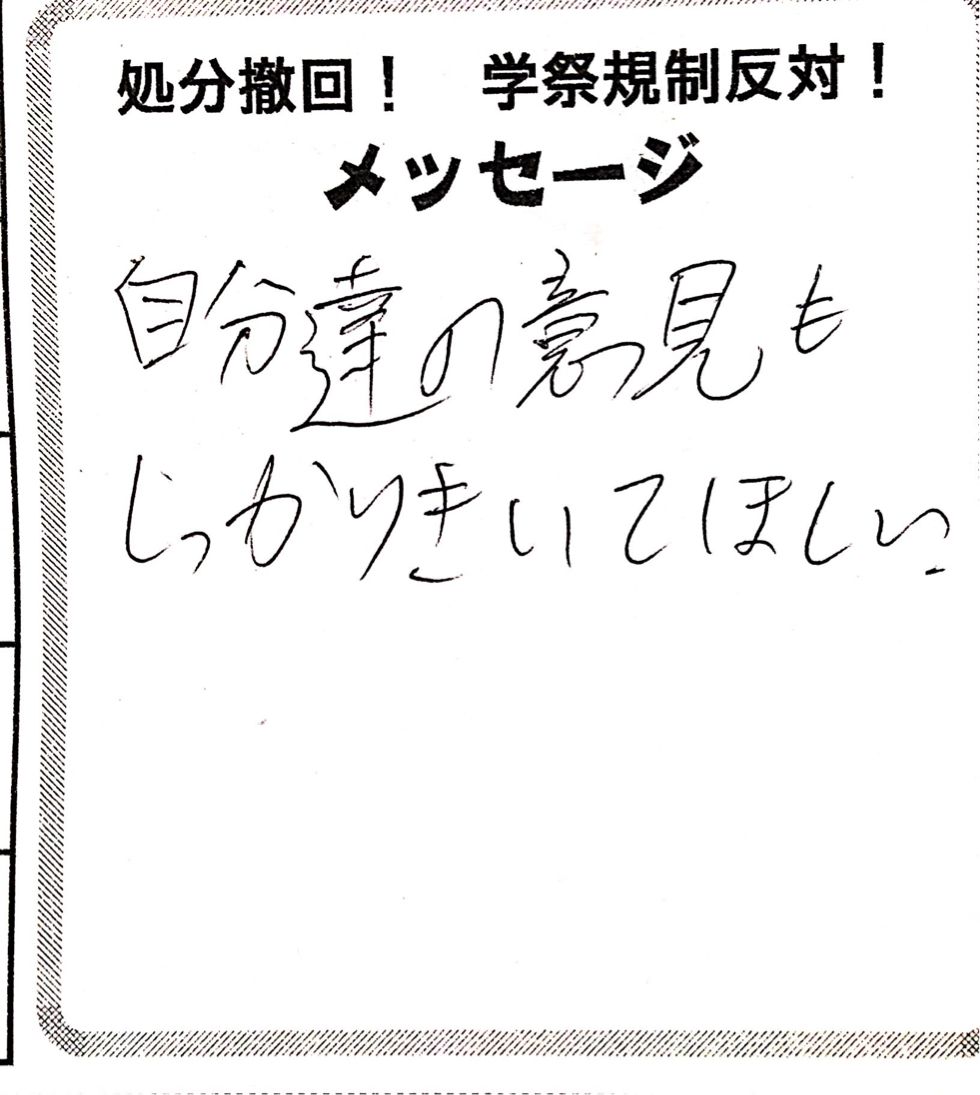 処分撤回！　学祭規制反対！
メッセージ
自分達の意見も
しっかりきいてほしい